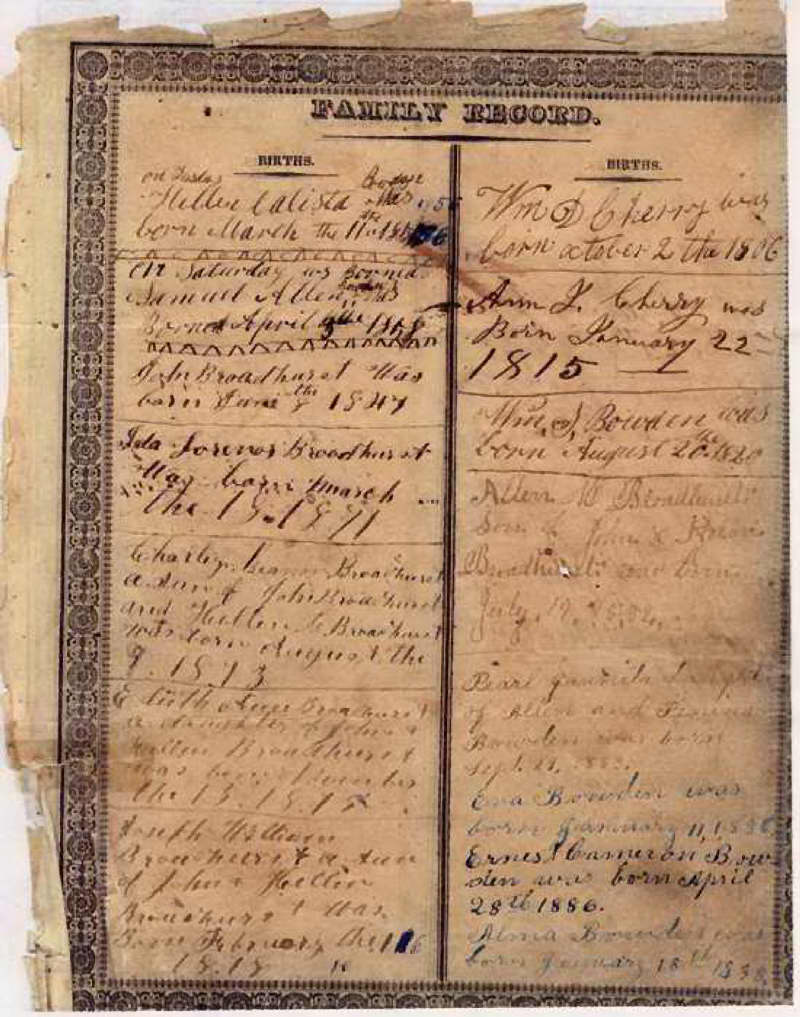 FAMILY RECORD.
BIRTHS.
on Tusday Bowden
Hellen Calista was
born March the 11th
on Saturday was Born
Samuel Allen Bowden was
Born April
John Broadhurst Was
born June 8th 1847
Ida Broadhurst
Was born March
the 15. 1871
Charley Broadhurst
a Sun of John Broadhurst
and Hellen C Broadhurst
was born August the
9. 1873
Edith Ann Broadhurst
a daughter of John &
Hellen Broadhurst
was born
the 15 1875
Joseph William
Broadhurst a Sun
of John & Hellen
Broadhurst Was
Born February the 16
BIRTHS.
Wm D Cherry was
born october 2 the 1806
Ann J. Cherry was
Born January 22
1815
Wm J Bowden was
born August 20 the 1820
Allen M Broadhurst
Son of John &
Broadhurst was Born
July 19,
Pearl
of Allen and
Bowden was born
Sept. 1883.
Eva Bowden was
born January 11,
Ernest Cameron Bow
den was born April
28th 1886.
Alma Bowden was
born January 18th 1888